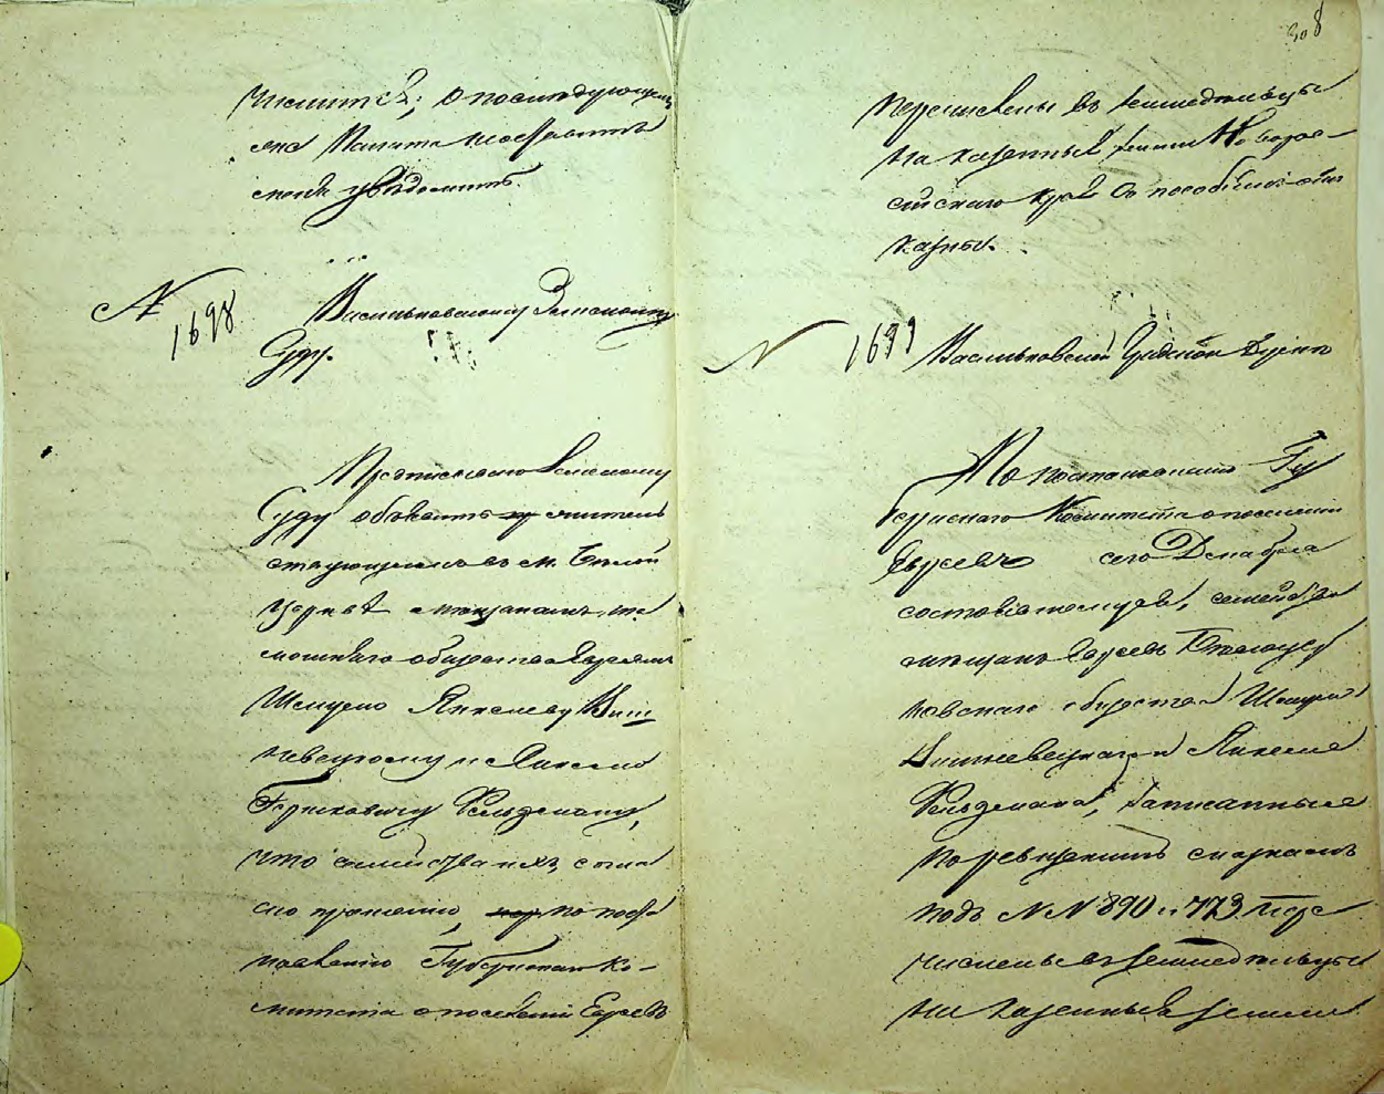 числится; о последующемъ
же Палата
меня увѣдомить.
№ 1698
Васильковскому Земскому
Суду.
Предписываю Земскому
Суду объявить житель
ствующимъ въ м. Бѣлой
Церквѣ мѣщанамъ та
мошняго общества Евреямъ
Шмулю Янкелеву Виш
невецкому и Янкелю
Берковичу Фельдману,
что семейства ихъ, согла
сно прошенію, по поста
новленію Губернскаго Ко-
митета о поселеніи Евреевъ
308
перечислены въ земледѣльцы
на казенныя земли Новорос-
сійскаго края съ пособіемъ отъ
казны.
№ 1699
Васильковской Градской Думѣ
По постановленію Гу
бернскаго Комитета о поселеніи
Евреевъ сего Декабря
состоявшемуся, семейства
мѣщанъ Евреевъ Бѣлоцер
ковскаго общества Шмуля
Вишневецкаго и Янкеля
Фельдмана, записанные
по ревизскимъ сказкамъ
подъ №№ 890 и 773 пере
числены въ земледѣльцы
на казенныя земли